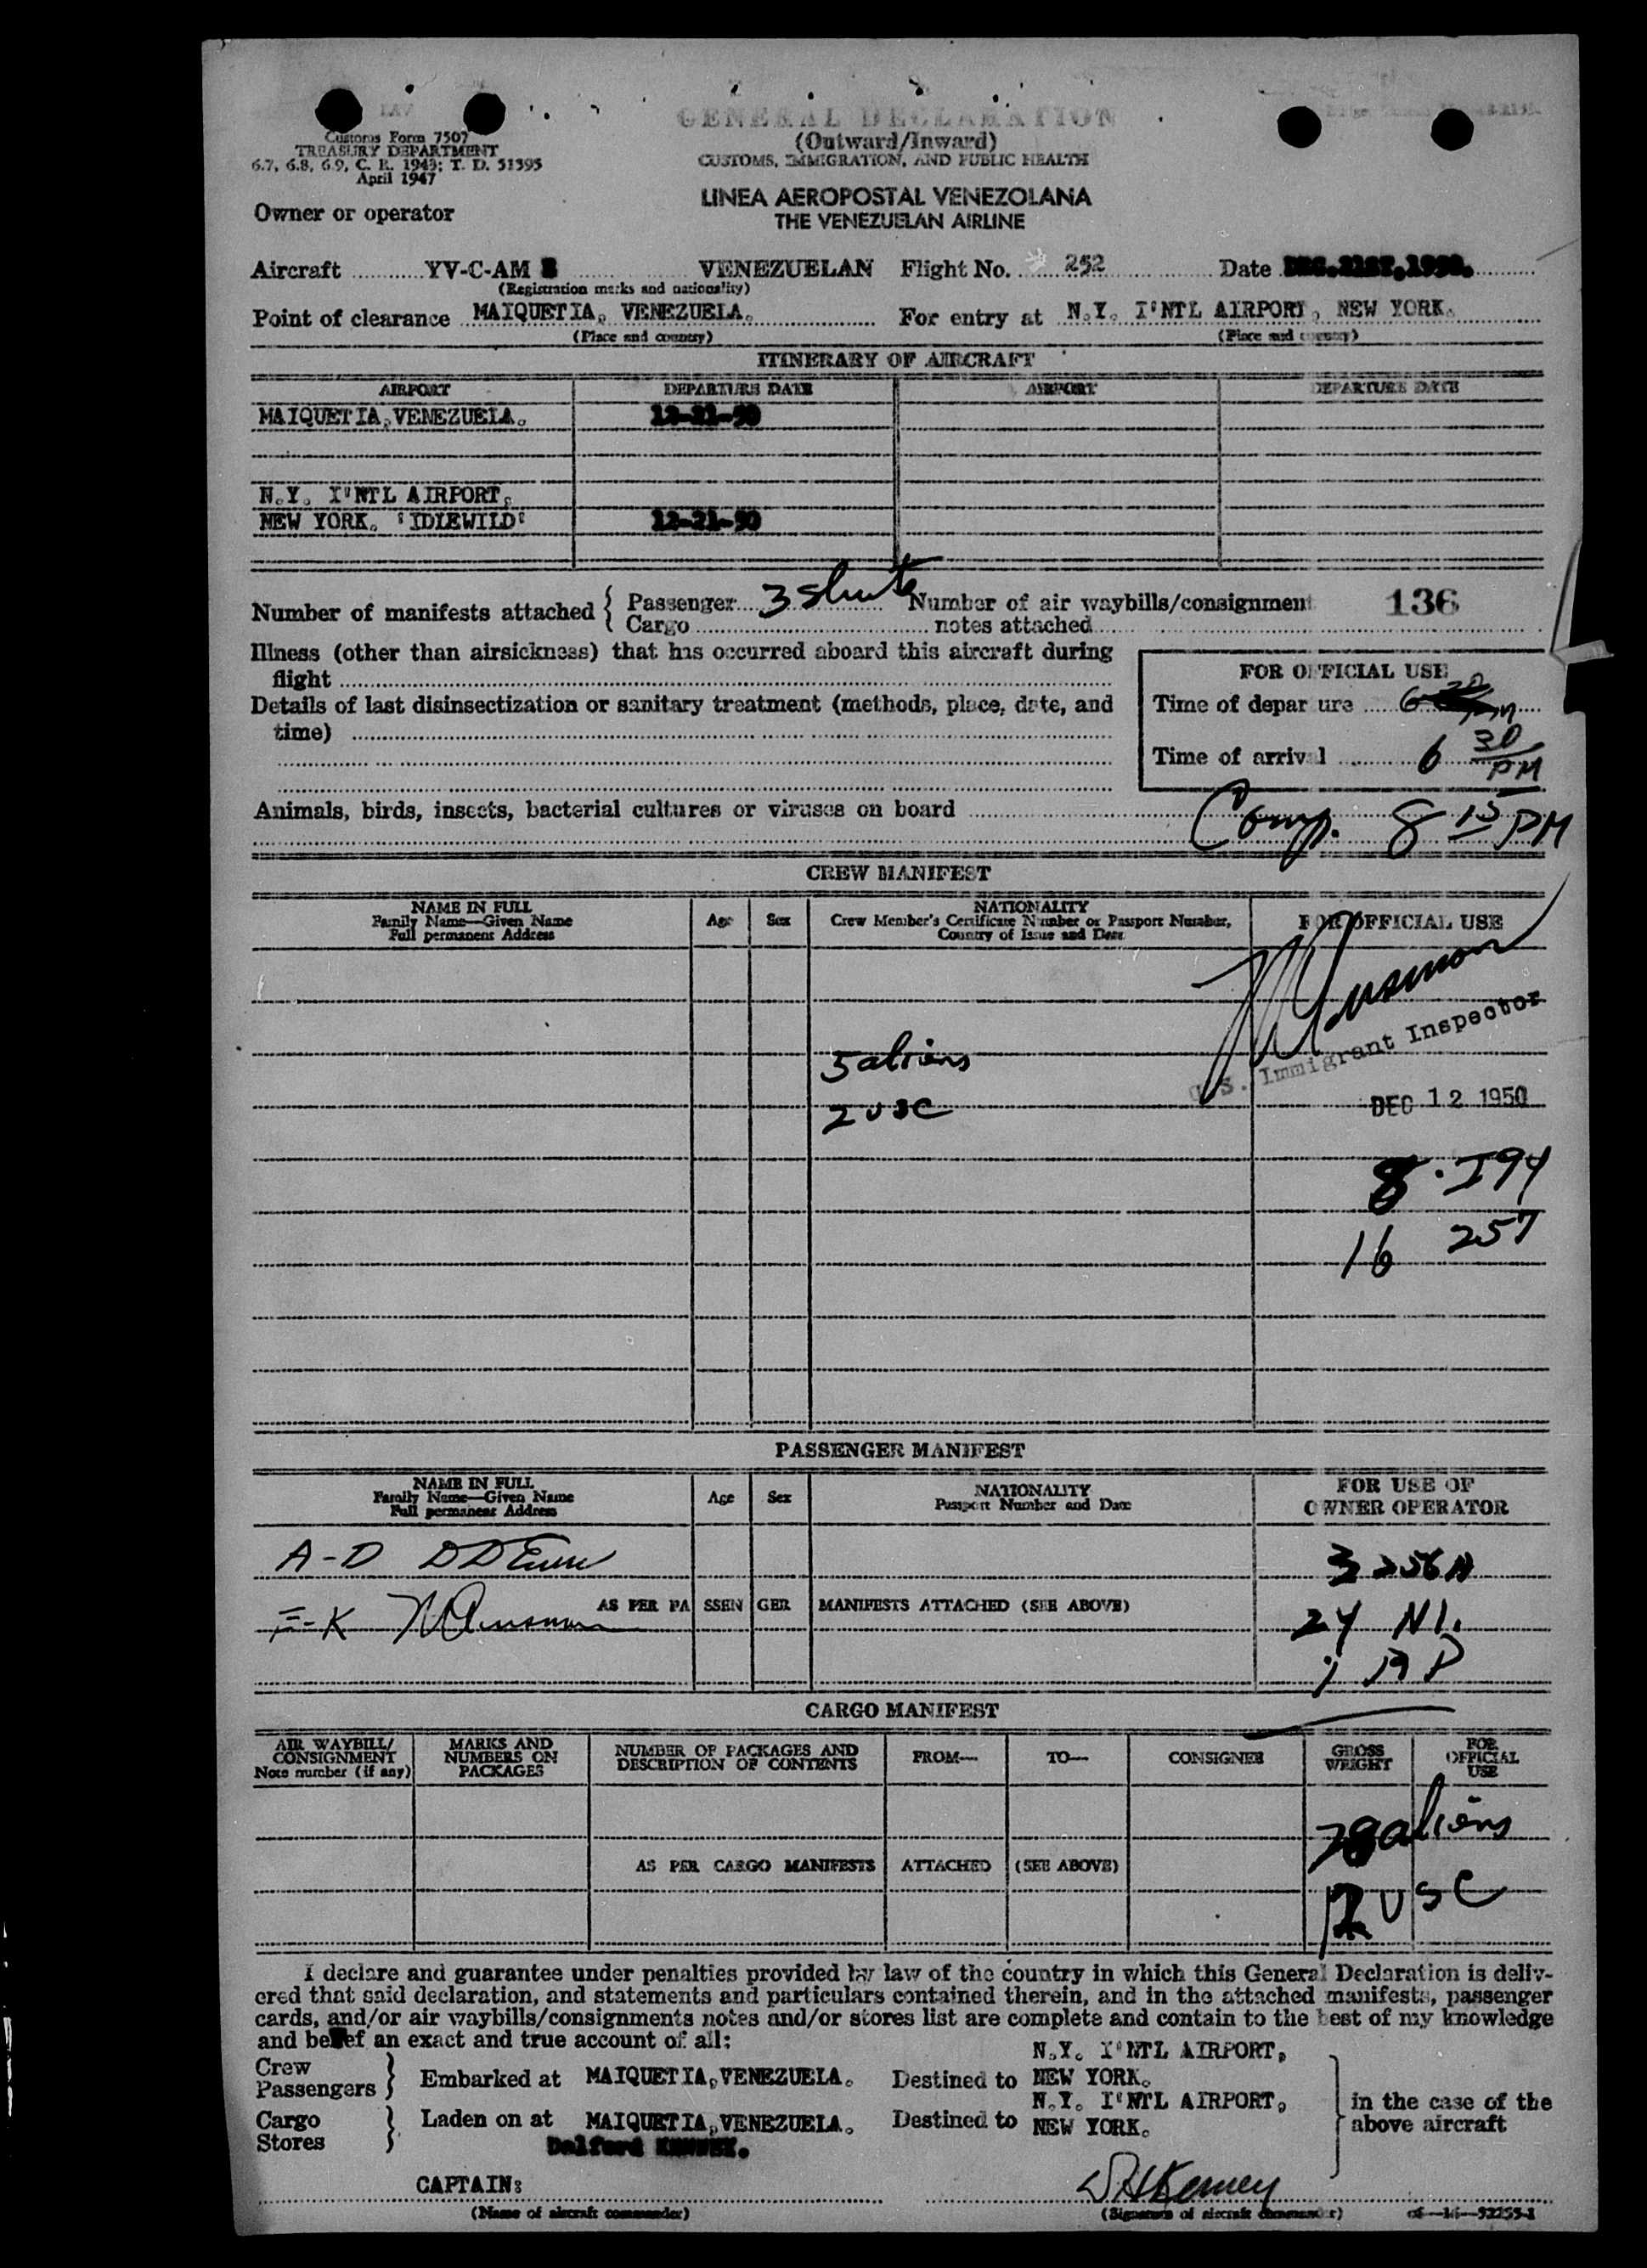 LAV
Customs Form 7507
TREASURY DEPARTMENT
6.7, 6.8, 6.9, C. R. 1943; T. D. 51395
April 1947
GENERAL DECLARATION
(Outward/Inward)
CUSTOMS, IMMIGRATION, AND PUBLIC HEALTH
Owner or operator
LINEA AEROPOSTAL VENEZOLANA
THE VENEZUELAN AIRLINE
Aircraft YV-C-AM VENEZUELAN Flight No. 252 Date DEC.21ST,1950.
(Registration marks and nationality)
Point of clearance MAIQUETIA, VENEZUELA. For entry at N.Y. I'NTL AIRPORT, NEW YORK.
(Place and country) (Place and country)
ITINERARY OF AIRCRAFT
AIRPORT DEPARTURE DATE AIRPORT DEPARTURE DATE
MAIQUETIA, VENEZUELA. 12-21-50
N.Y. I'NTL AIRPORT,
NEW YORK. 'IDLEWILD' 12-21-50
Number of manifests attached { Passenger 3 Number of air waybills/consignment 136
Cargo notes attached
Illness (other than airsickness) that has occurred aboard this aircraft during
flight
Details of last disinsectization or sanitary treatment (methods, place, date, and
time)
FOR OFFICIAL USE
Time of departure 6
Time of arrival 6 30 PM
Animals, birds, insects, bacterial cultures or viruses on board
Comp. 8 15 PM
CREW MANIFEST
NAME IN FULL
Family Name—Given Name
Full permanent Address
Age Sex
NATIONALITY
Crew Member's Certificate Number or Passport Number,
Country of Issue and Date
FOR OFFICIAL USE
U.S. Immigrant Inspector
5 aliens
2 USC
DEC 12 1950
8 . I94
16 257
PASSENGER MANIFEST
NAME IN FULL
Family Name—Given Name
Full permanent Address
Age Sex
NATIONALITY
Passport Number and Date
FOR USE OF
OWNER OPERATOR
A-D
3 256A
F-K AS PER PASSENGER MANIFESTS ATTACHED (SEE ABOVE)
24 NI.
CARGO MANIFEST
AIR WAYBILL/
CONSIGNMENT
Note number (if any)
MARKS AND
NUMBERS ON
PACKAGES
NUMBER OF PACKAGES AND
DESCRIPTION OF CONTENTS
FROM— TO— CONSIGNEE
GROSS
WEIGHT
FOR
OFFICIAL
USE
28 aliens
AS PER CARGO MANIFESTS ATTACHED (SEE ABOVE)
USC
I declare and guarantee under penalties provided by law of the country in which this General Declaration is deliv-
ered that said declaration, and statements and particulars contained therein, and in the attached manifests, passenger
cards, and/or air waybills/consignments notes and/or stores list are complete and contain to the best of my knowledge
and belief an exact and true account of all:
Crew
Passengers } Embarked at MAIQUETIA, VENEZUELA. Destined to N.Y. I'NTL AIRPORT, NEW YORK.
Cargo
Stores } Laden on at MAIQUETIA, VENEZUELA. Destined to N.Y. I'NTL AIRPORT, NEW YORK.
in the case of the
above aircraft
Delford
CAPTAIN:
(Name of aircraft commander) (Signature of aircraft commander)